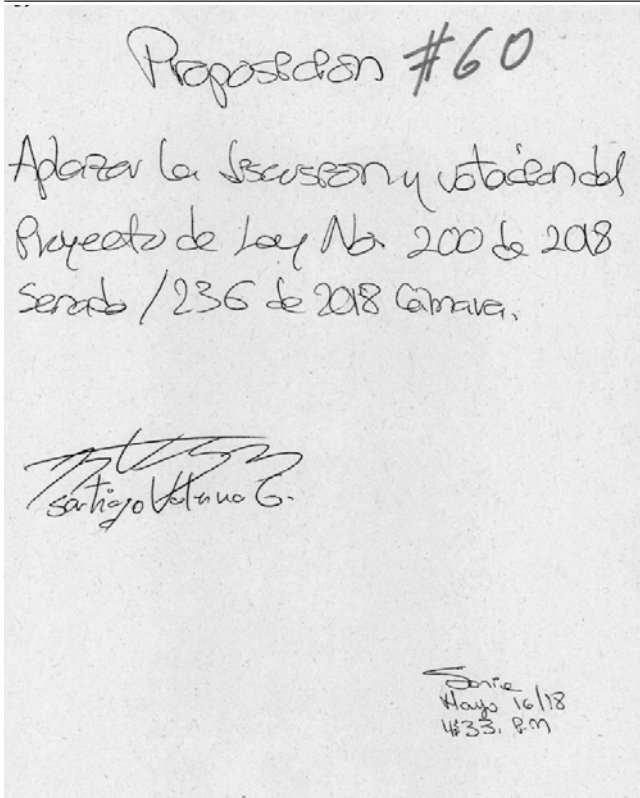 Proposición #60
Aplazar la discusión y votación del
Proyecto de Ley No. 200 de 2018
Senado / 236 de 2018 Cámara.
Santiago Valencia G.
Sonia
Mayo 16/18
4:33. P.M